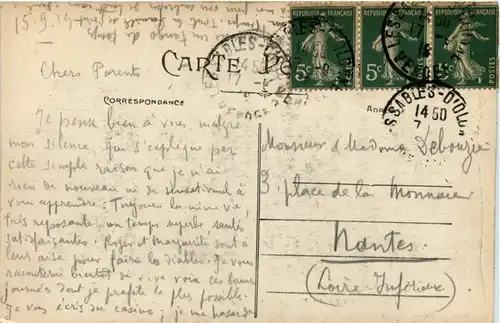 15-9-14
CARTE POSTALE
RÉPUBLIQUE FRANÇAISE
5c POSTES
RÉPUBLIQUE FRANÇAISE
5c POSTES
RÉPUBLIQUE FRANÇAISE
5c POSTES
SABLES-D'OL
14 50
17
SSABLES-D'OLO
14 50
Chers Parents
CORRESPONDANCE
Je pense bien à vous, malgré
mon silence, qui s'explique par
cette simple raison que je n'ai
rien de nouveau ni de sensationnel à
vous apprendre. Toujours la même vie,
très reposante, un temps superbe santés
satisfaisantes. Roger et Marguerite sont à
leur aise pour faire les diables. Je vous
raconterai bientôt de vive voix ces bonnes
journées dont je profite le plus possible.
Je vous écris du casino; je me
Monsieur & Madame
3 place de la Monnaie
Nantes
(Loire Inférieure)